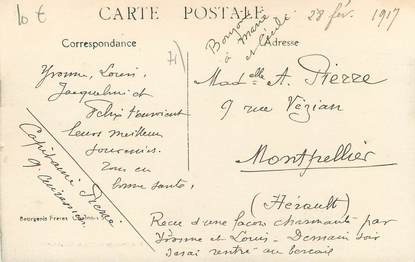 10 €
CARTE POSTALE
28 fév. 1917
Correspondance
Adresse
Bonjour
à Marie
et Cécile
Yvonne, Louis,
Jacqueline et
Félix t'envoient
leurs meilleurs
souvenirs.
Tous en
bonne santé.
Capitaine Pierre
Bourgeois Frères
Mad elle A. Pierre
9 rue Vézian
Montpellier
(Hérault)
Reçu d'une façon charmante par
Yvonne et Louis - Demain soir
serai rentré au bercail